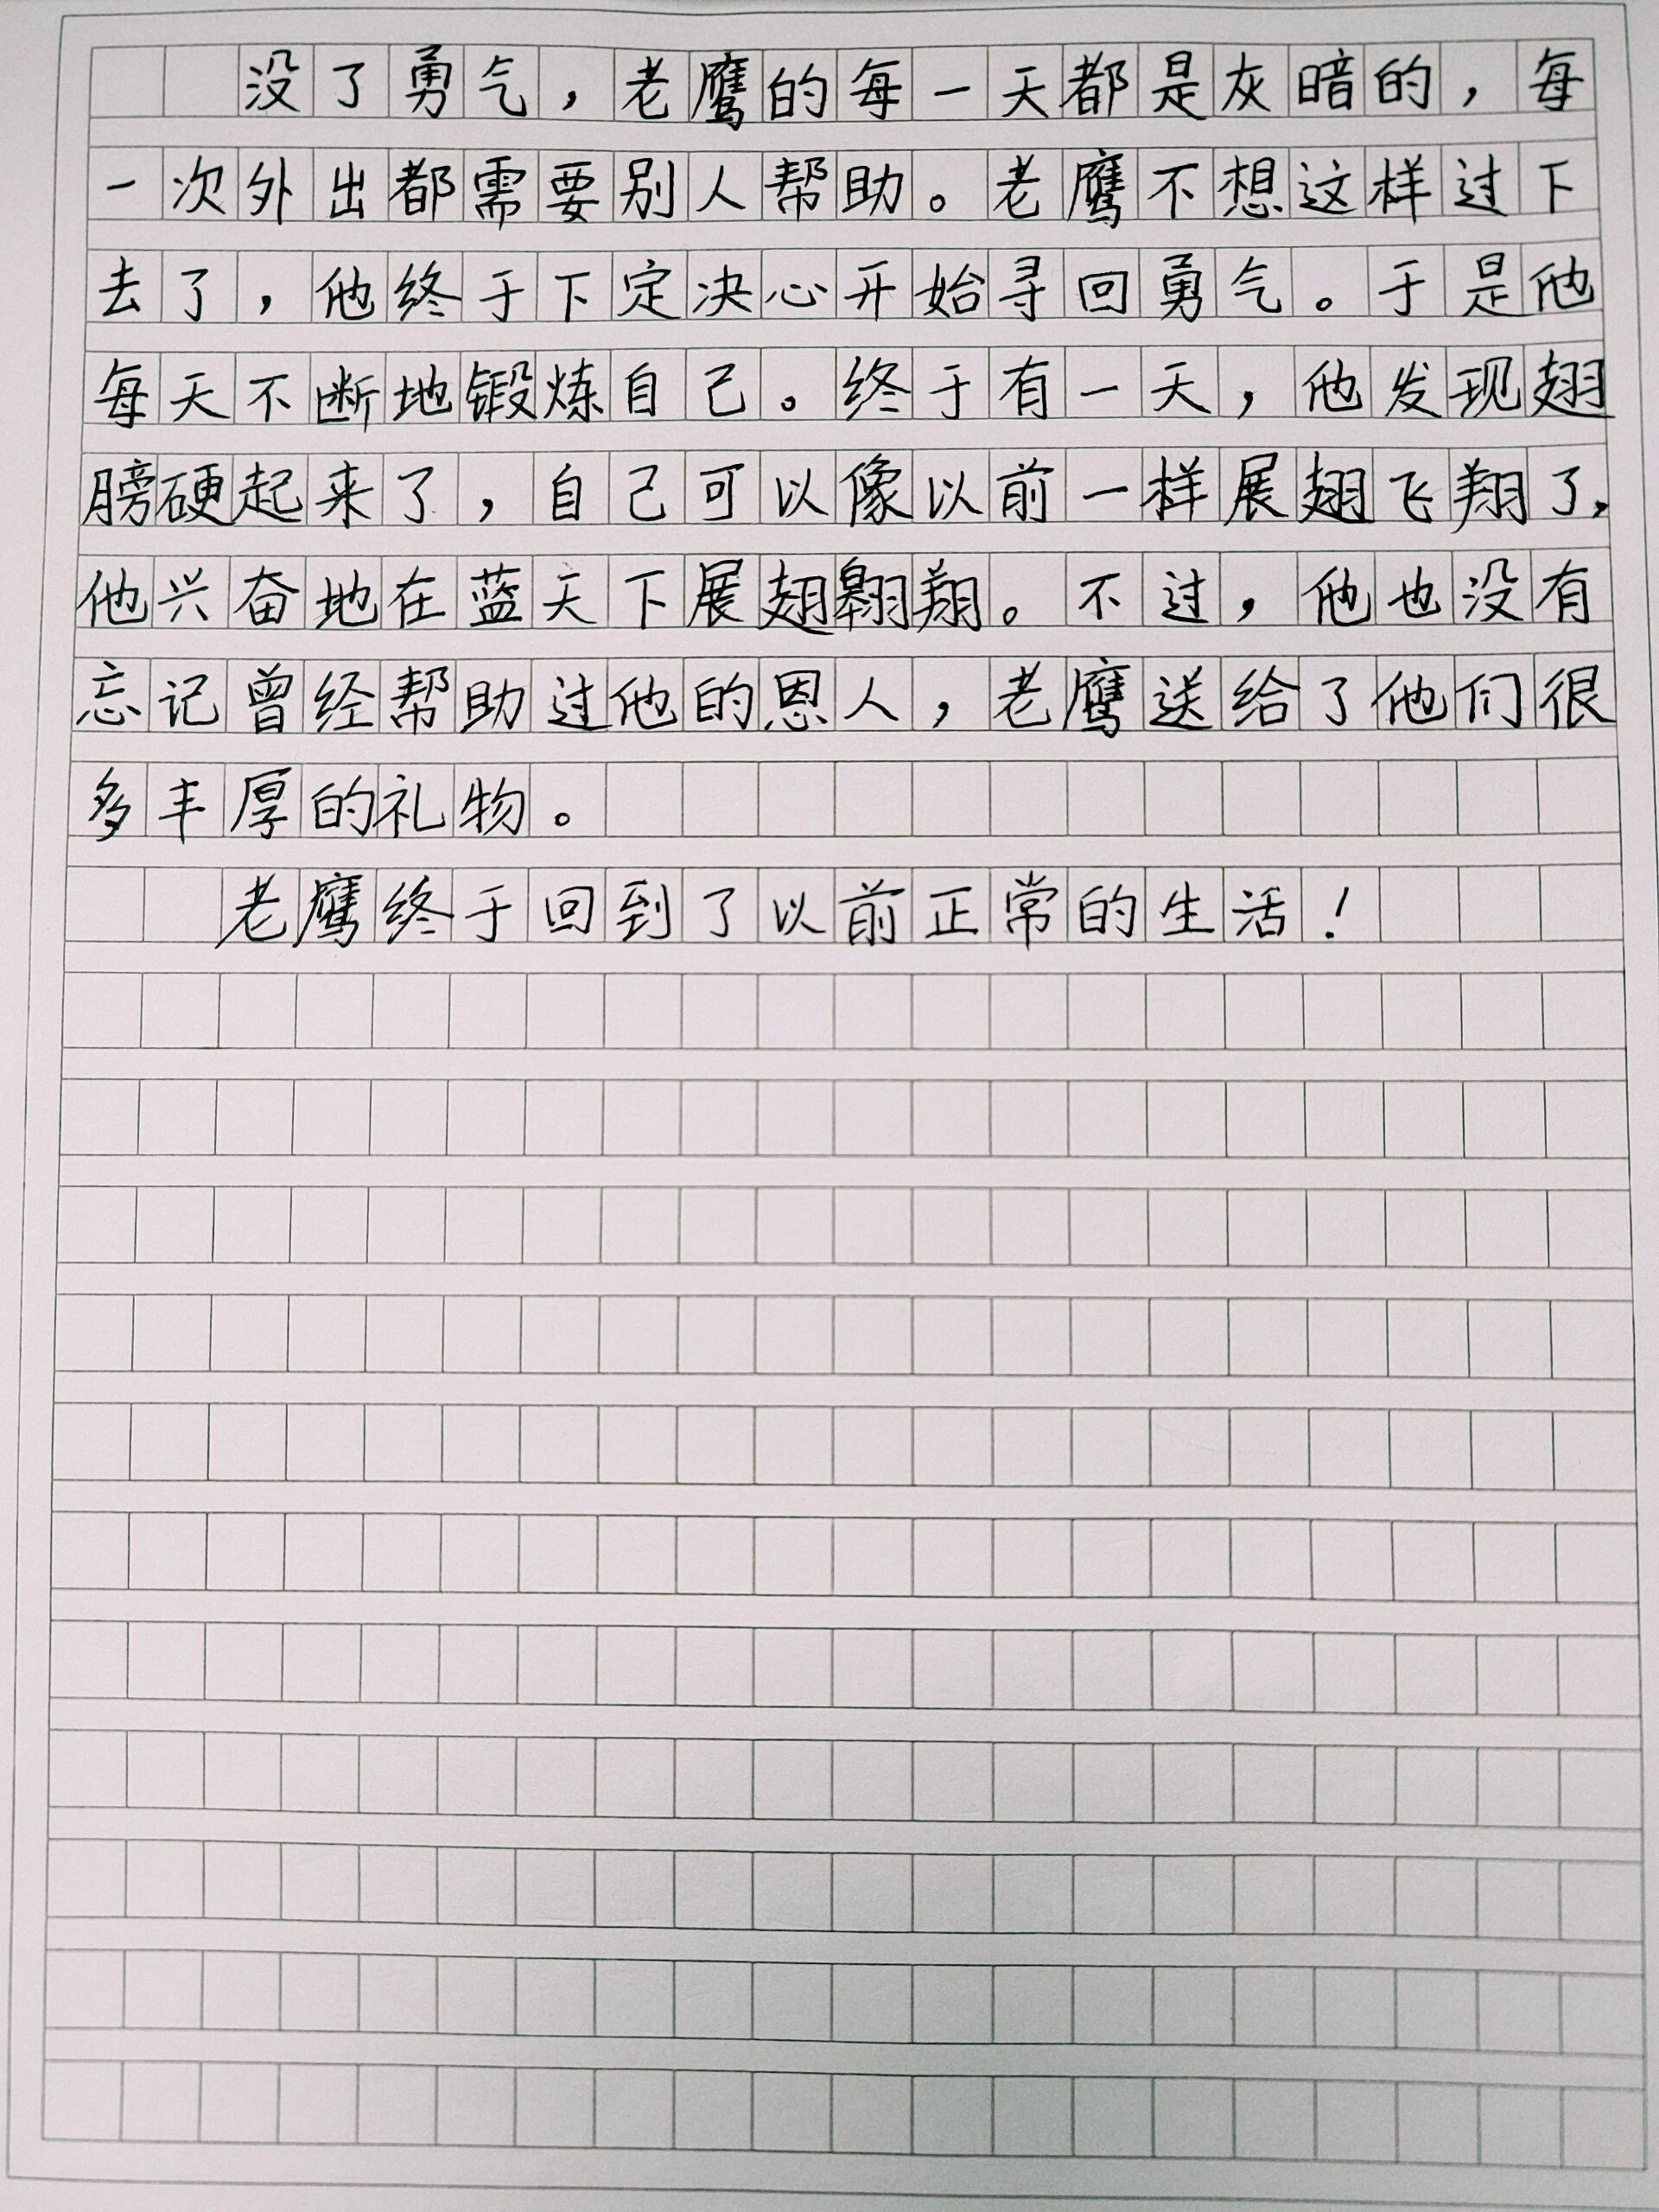 没了勇气，老鹰的每一天都是灰暗的，每
一次外出都需要别人帮助。老鹰不想这样过下
去了，他终于下定决心开始寻回勇气。于是他
每天不断地锻炼自己。终于有一天，他发现翅
膀硬起来了，自己可以像以前一样展翅飞翔了，
他兴奋地在蓝天下展翅翱翔。不过，他也没有
忘记曾经帮助过他的恩人，老鹰送给了他们很
多丰厚的礼物。
老鹰终于回到了以前正常的生活！